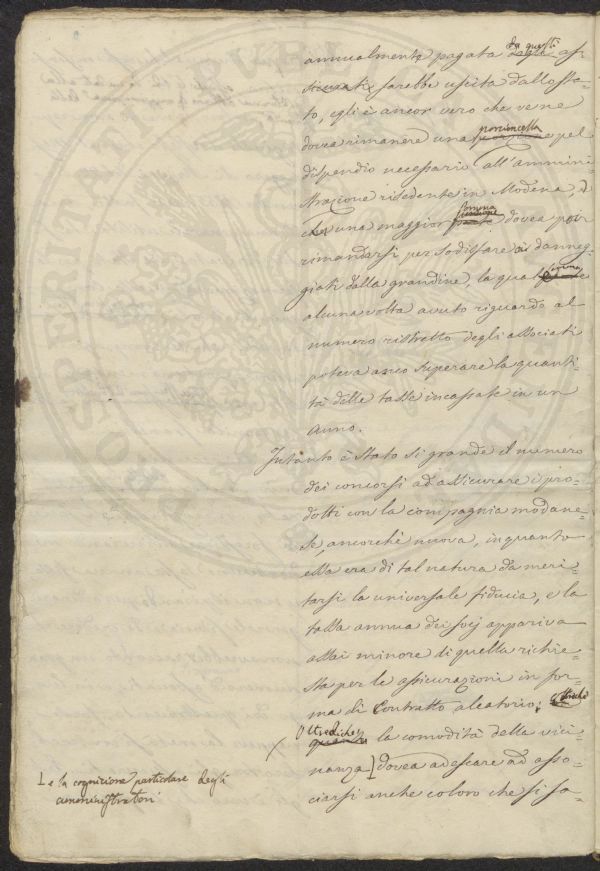 da questi
annualmente pagata dagli as=
sicurati sarebbe uscita dallo Sta=
to, egli è ancor vero che ve ne
porzioncella
dovea rimanere una porzione pel
dispendio necessario all'ammini=
strazione risedente in Modena, e
somma
che una maggior parte dovea pur
rimandarsi per sodisfare ai danneg=
giati dalla grandine, la qual somma
alcuna volta avuto riguardo al
numero ristretto degli associati
poteva anco superare la quanti=
tà delle tasse incassate in un
anno.
Intanto è stato sì grande il numero
dei concorsi ad assicurare i pro=
dotti con la compagnia modane=
se, ancorchè nuova, in quanto
ella era di tal natura da meri=
tarsi la universale fiducia, e la
tassa annua dei socj appariva
assai minore di quella richie=
sta per le assicurazioni in for=
ma di Contratto aleatorio; oltrechè
Oltredichè
la comodità della vici=
nanza dovea adescare ad asso=
ciarsi anche coloro che si fa=
e la cognizione particolare degli
amministratori